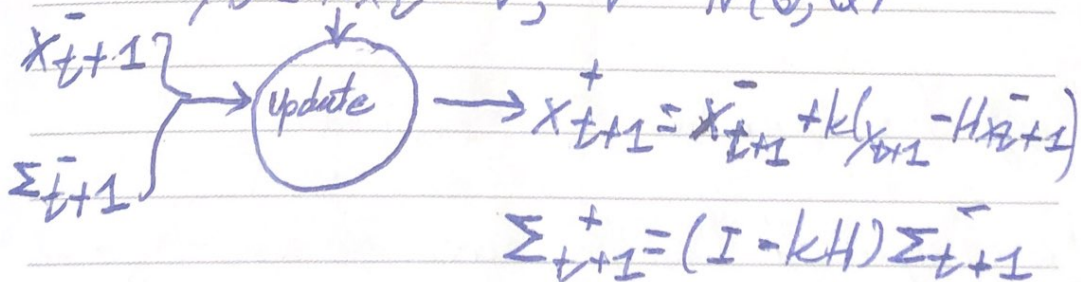 x⁻_{t+1}
update → x⁺_{t+1} = x⁻_{t+1} + k(y_{t+1} - Hx⁻_{t+1})
Σ⁻_{t+1}
Σ⁺_{t+1} = (I - kH)Σ⁻_{t+1}